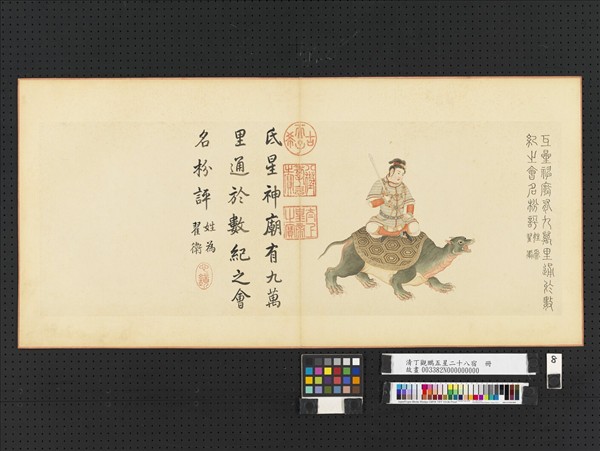 氐星神廟有九萬里通於數
紀之會名粉評
姓為
翟衛
古希天子
氐星神廟有九萬
里通於數紀之會
名粉評
姓為
翟衛
清丁觀鵬五星二十八宿 冊
故畫 003382N000000000
8